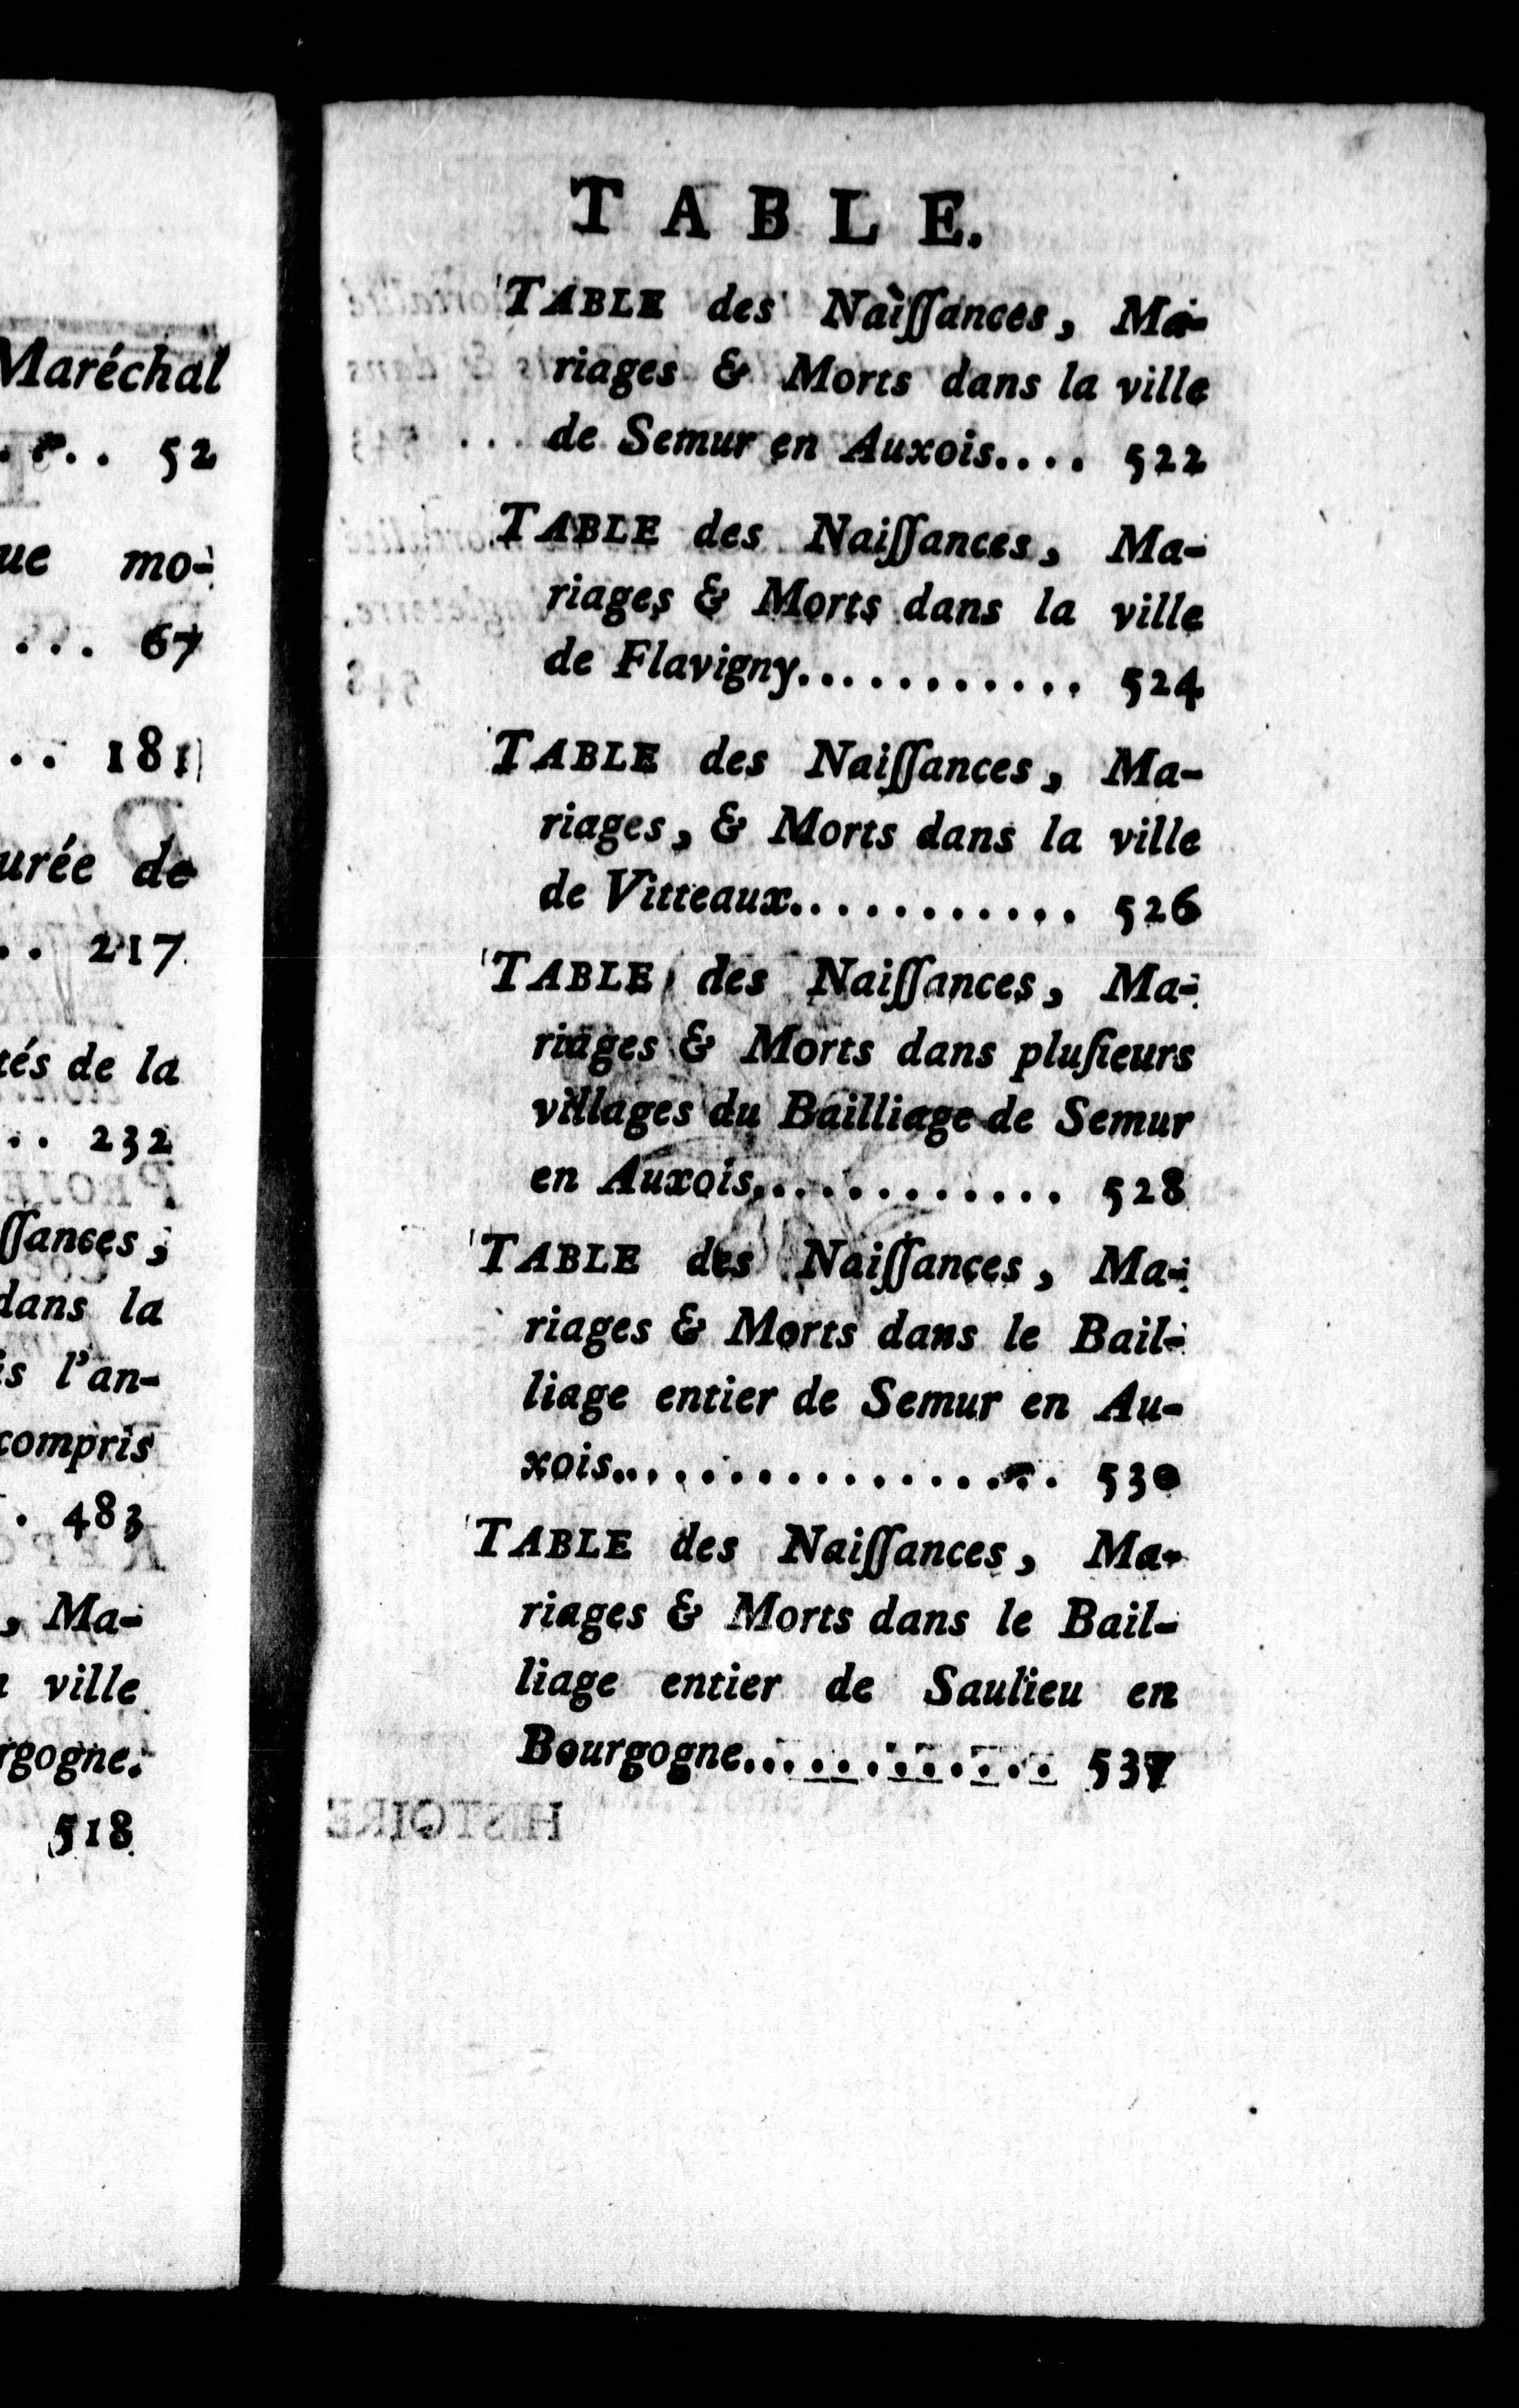 Maréchal
52
ue mo-
67
181
urée de
217
tés de la
232
ſſances,
dans la
is l'an-
compris
483
, Ma-
ville
rgogne.
518
TABLE.
TABLE des Naiſſances, Ma-
riages & Morts dans la ville
de Semur en Auxois.... 522
TABLE des Naiſſances, Ma-
riages & Morts dans la ville
de Flavigny............ 524
TABLE des Naiſſances, Ma-
riages, & Morts dans la ville
de Vitteaux........... 526
TABLE des Naiſſances, Ma-
riages & Morts dans pluſieurs
villages du Bailliage de Semur
en Auxois............. 528
TABLE des Naiſſances, Ma-
riages & Morts dans le Bail-
liage entier de Semur en Au-
xois.................. 530
TABLE des Naiſſances, Ma-
riages & Morts dans le Bail-
liage entier de Saulieu en
Bourgogne............. 537